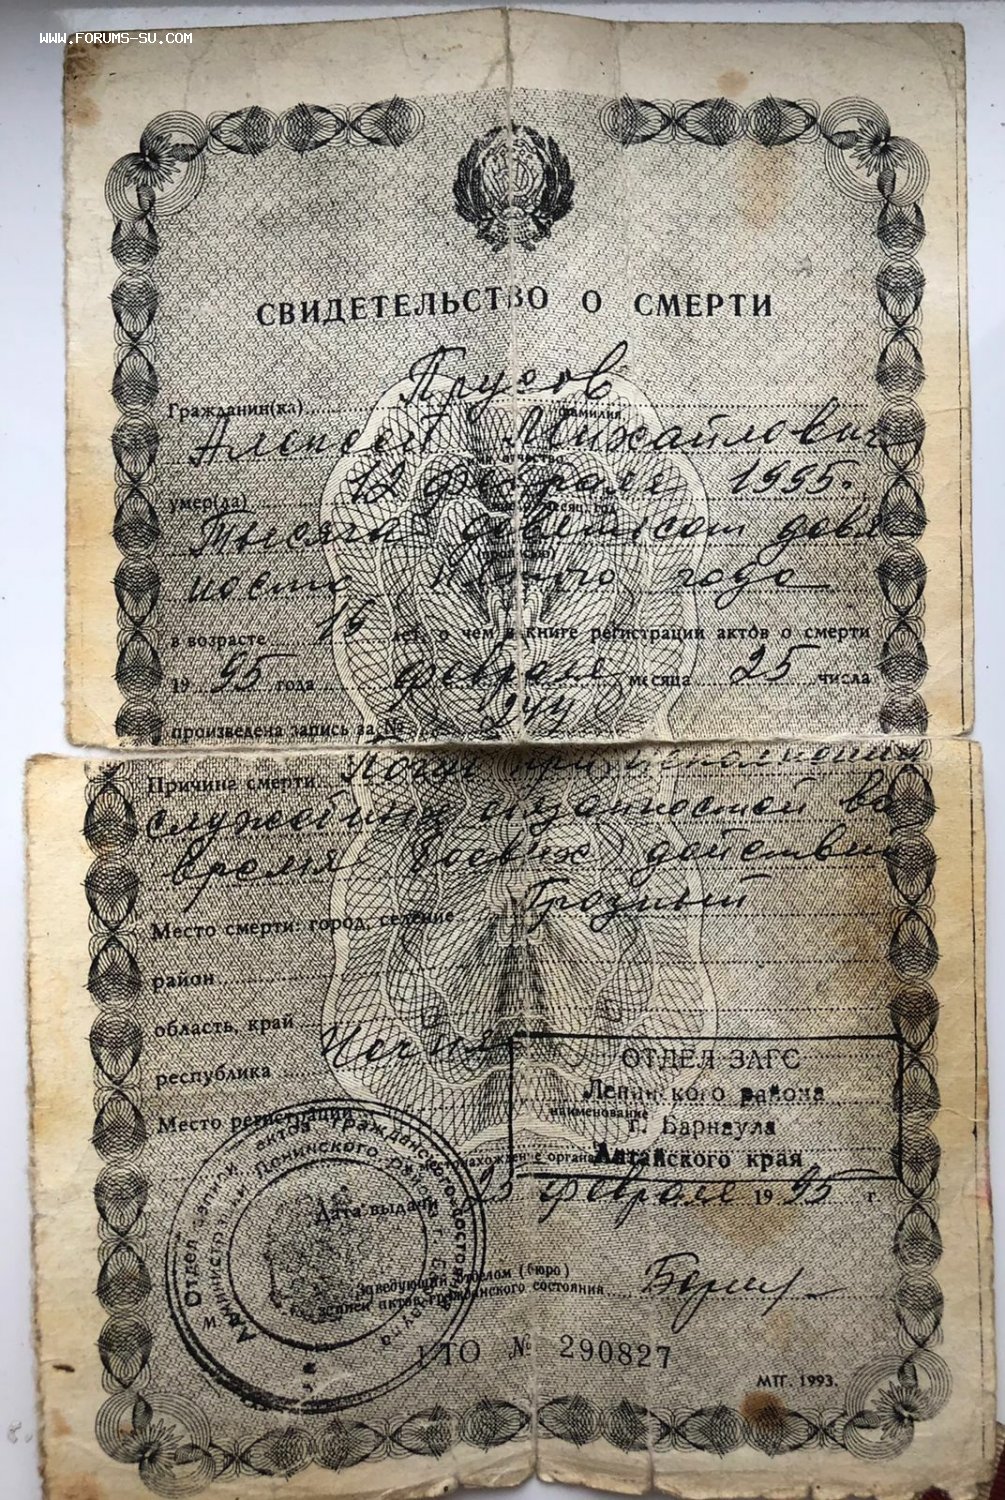 WWW.FORUMS-SU.COM
СВИДЕТЕЛЬСТВО О СМЕРТИ
Гражданин(ка) Прусов
фамилия
Алексей Михайлович
имя, отчество
умер(ла) 12 февраля 1995.
число, месяц, год
Тысяча девятьсот девя
(прописью)
носто пятого года
в возрасте 19 лет, о чем в книге регистрации актов о смерти
19 95 года февраля месяца 25 числа
произведена запись за № 244
Причина смерти Погиб при исполнении
служебных обязанностей во
время боевых действий
Место смерти: город, селение Грозный
район
область, край
республика Чечня
Место регистрации
ОТДЕЛ ЗАГС
Ленинского района
наименование
г. Барнаула
Алтайского края
местонахождение органа
Дата выдачи февраля 19 95 г.
Заведующий отделом (бюро)
записи актов гражданского состояния
Отдел записи актов гражданского состояния
Администрации Ленинского района г. Барнаула
М.
ТО № 290827
МТГ. 1993.